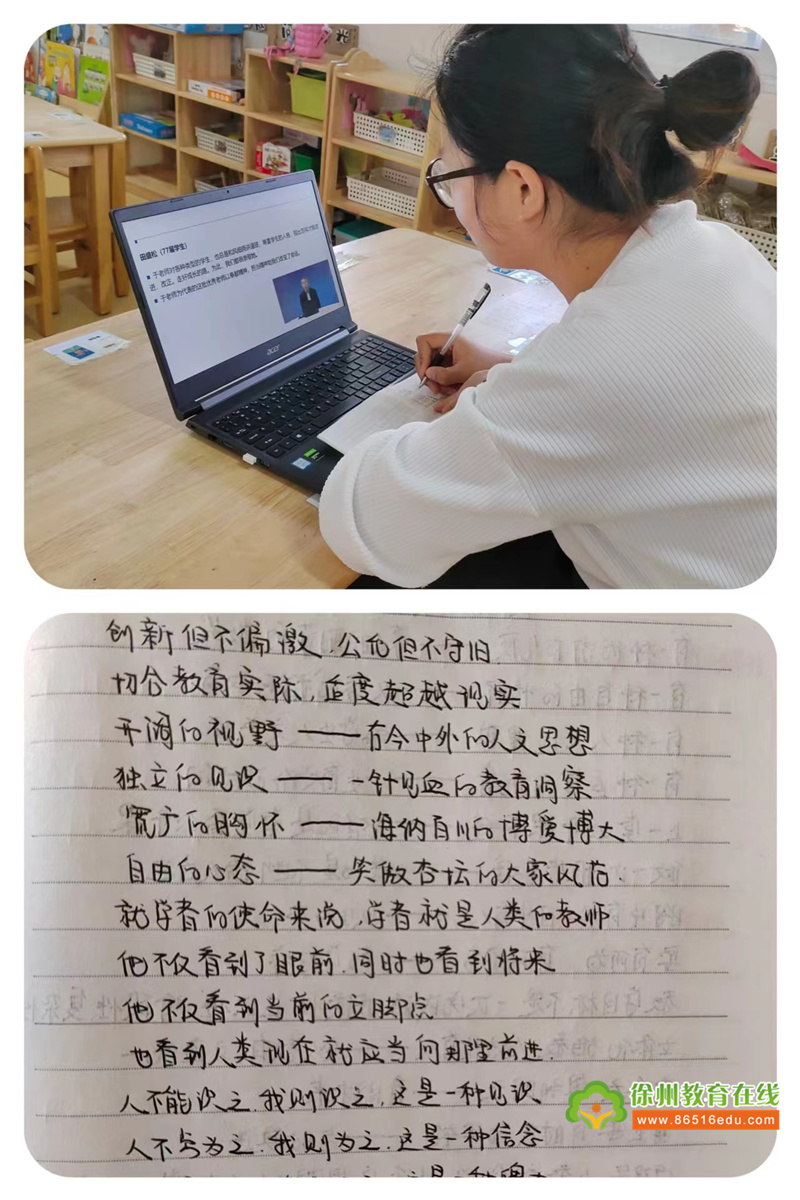 田盛松（77届学生）
acer
创新但不偏激，公允但不守旧.
切合教育实际，适度超越现实
开阔的视野——古今中外的人文思想
独立的见识——一针见血的教育洞察
宽广的胸怀——海纳百川的博爱博大
自由的心态——笑傲杏坛的大家风范.
就学者的使命来说，学者就是人类的教师
他不仅看到了眼前，同时也看到将来
他不仅看到当前的立脚点
也看到人类现在就应当向那里前进.
人不能识之，我则识之，这是一种见识
人不为之，我则为之，这是一种信念
徐州教育在线
www.86516edu.com